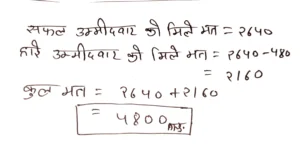 सफल उम्मीदवार को मिले मत = 2640
हारे उम्मीदवार को मिले मत = 2640-480
= 2160
कुल मत = 2640 + 2160
= 4800 Ans.